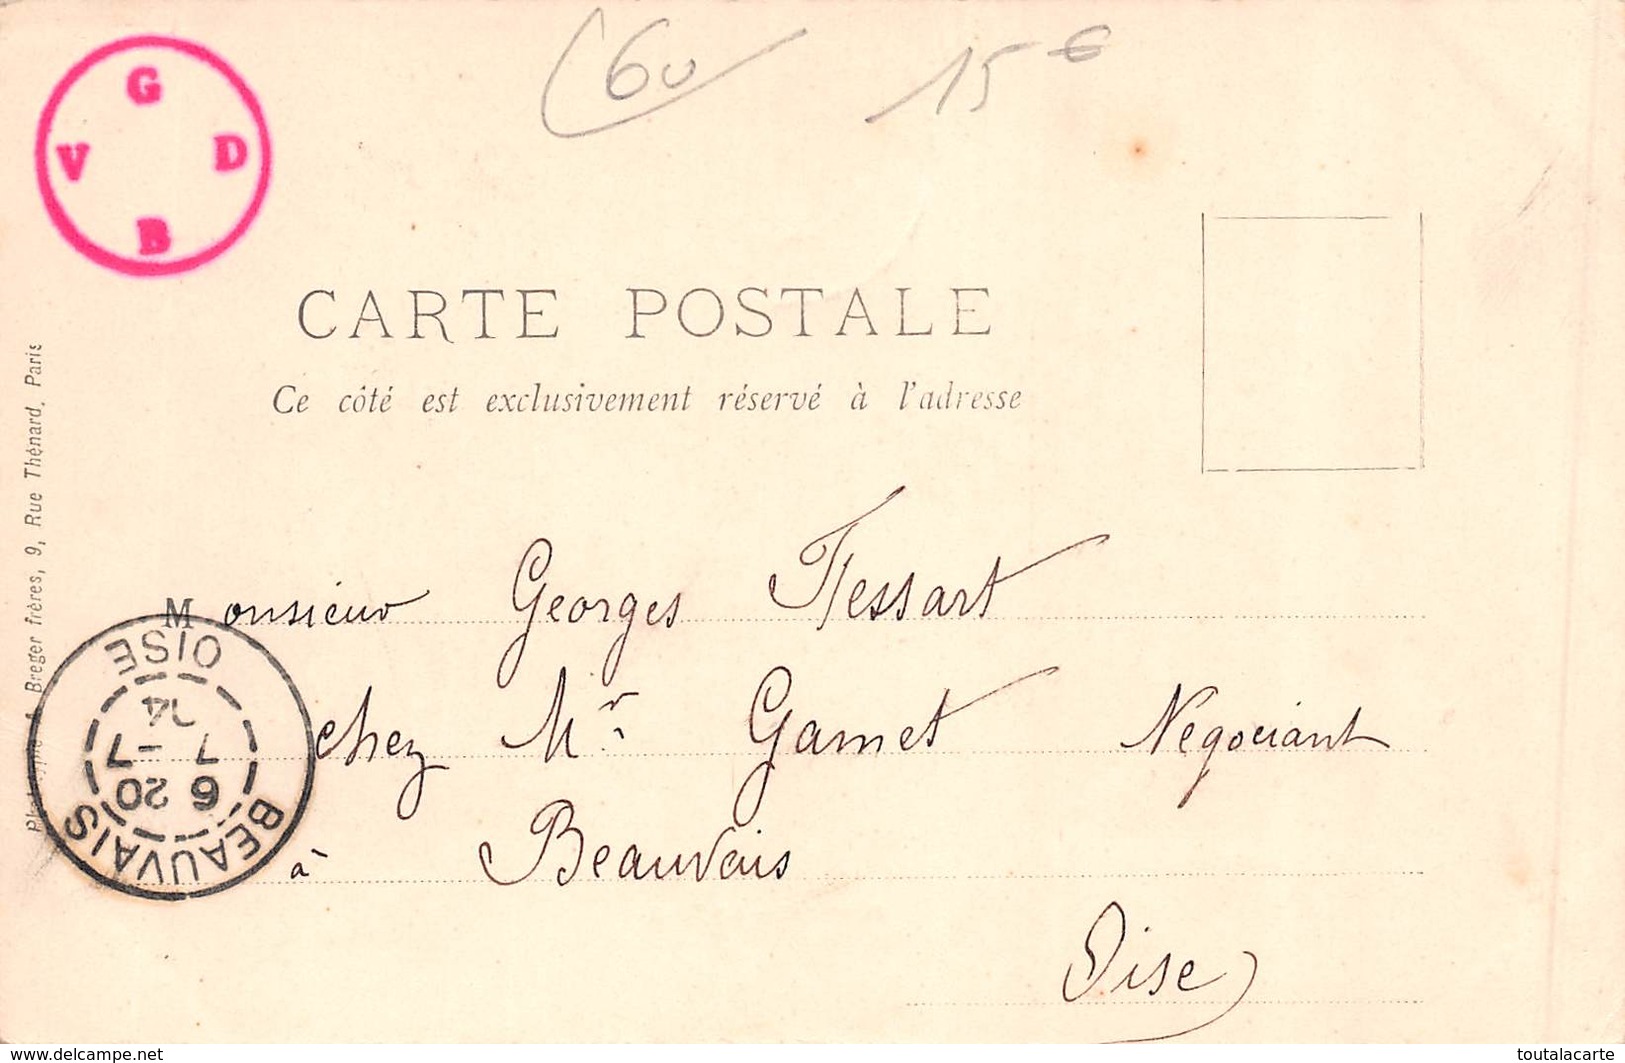 (60
15 €
G
V D
B
CARTE POSTALE
Ce côté est exclusivement réservé à l'adresse
Breger frères, 9, Rue Thénard, Paris
Monsieur Georges Tessart
chez Mr Gamet Négociant
à Beauvais
Oise
BEAUVAIS
6 20
7 -7
04
OISE
www.delcampe.net
toutalacarte